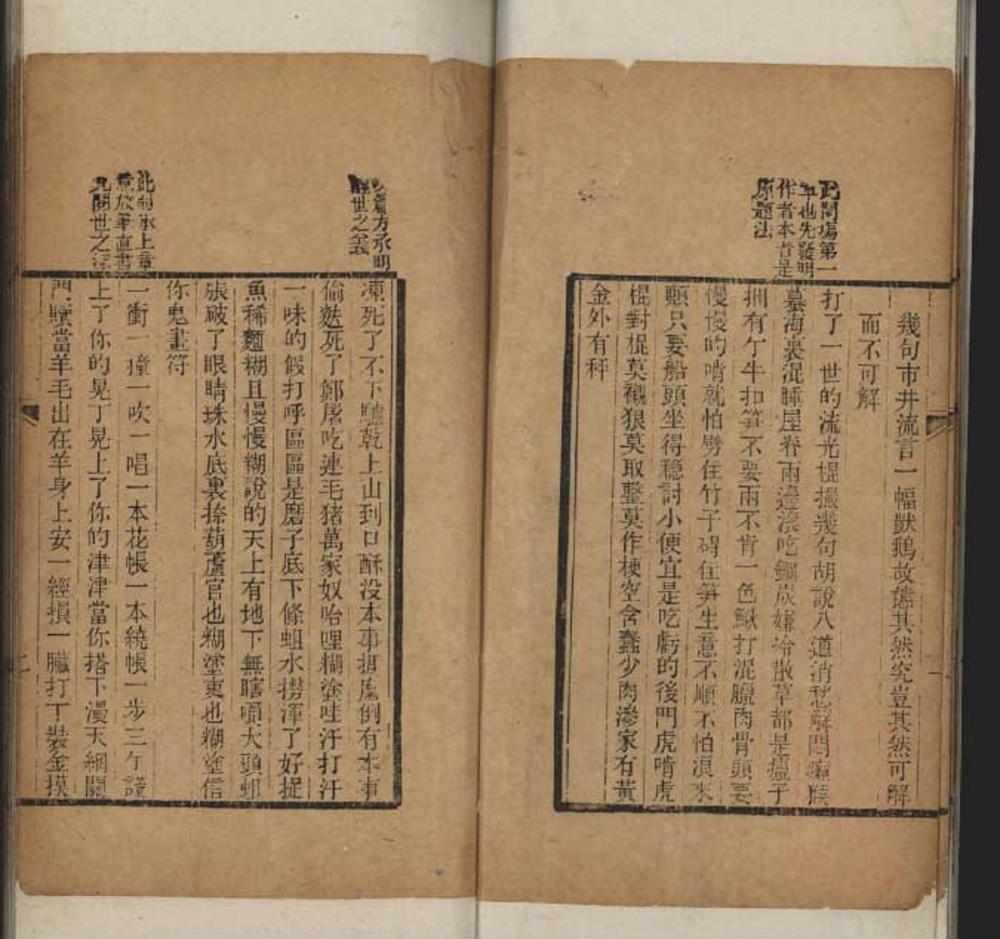 幾句市井流言一幅獸鵝故態其然究豈其然可解
而不可解
此開場第一
也先發明
作者本旨是
原題法
打了一世的流光棍撮幾句胡說八道消愁解悶
海裏混睡屋脊兩邊滚吃鋼炭嫌冷散草都是
捆有个牛扣笋不要兩不肯一色鰍打混臘肉骨頭要
慢慢的啃就怕劈住竹子碍住笋生意不順不怕浪來
顛只要船頭坐得穩討小便宜是吃虧的後門虎啃虎
棍對棍莫襯狠莫取整莫作梗空含蠢少肉滲家有黃
金外有秤
方承明
世之義
凍死了不下驢乾上山到口酥没本事推磨倒有本事
偷麩死了鄒屠吃連毛猪萬家奴哈哩糊塗哇汗打汗
一味的假打呼區區是磨子底下條蛆水撈渾了好捉
魚稀麵糊且慢慢糊說的天上有地下無瞎嗊大頭蛆
張破了眼睛珠水底裏捺葫蘆官也糊塗吏也糊塗信
你鬼畫符
此承上章
放筆直書
開世之
一衝一撞一吹一唱一本花帳一本繞帳一步三个謊
上了你的晃丁晃上了你的津津當你搭下漫天網關
門驥當羊毛出在羊身上安一經損一臟打丁裝金摸